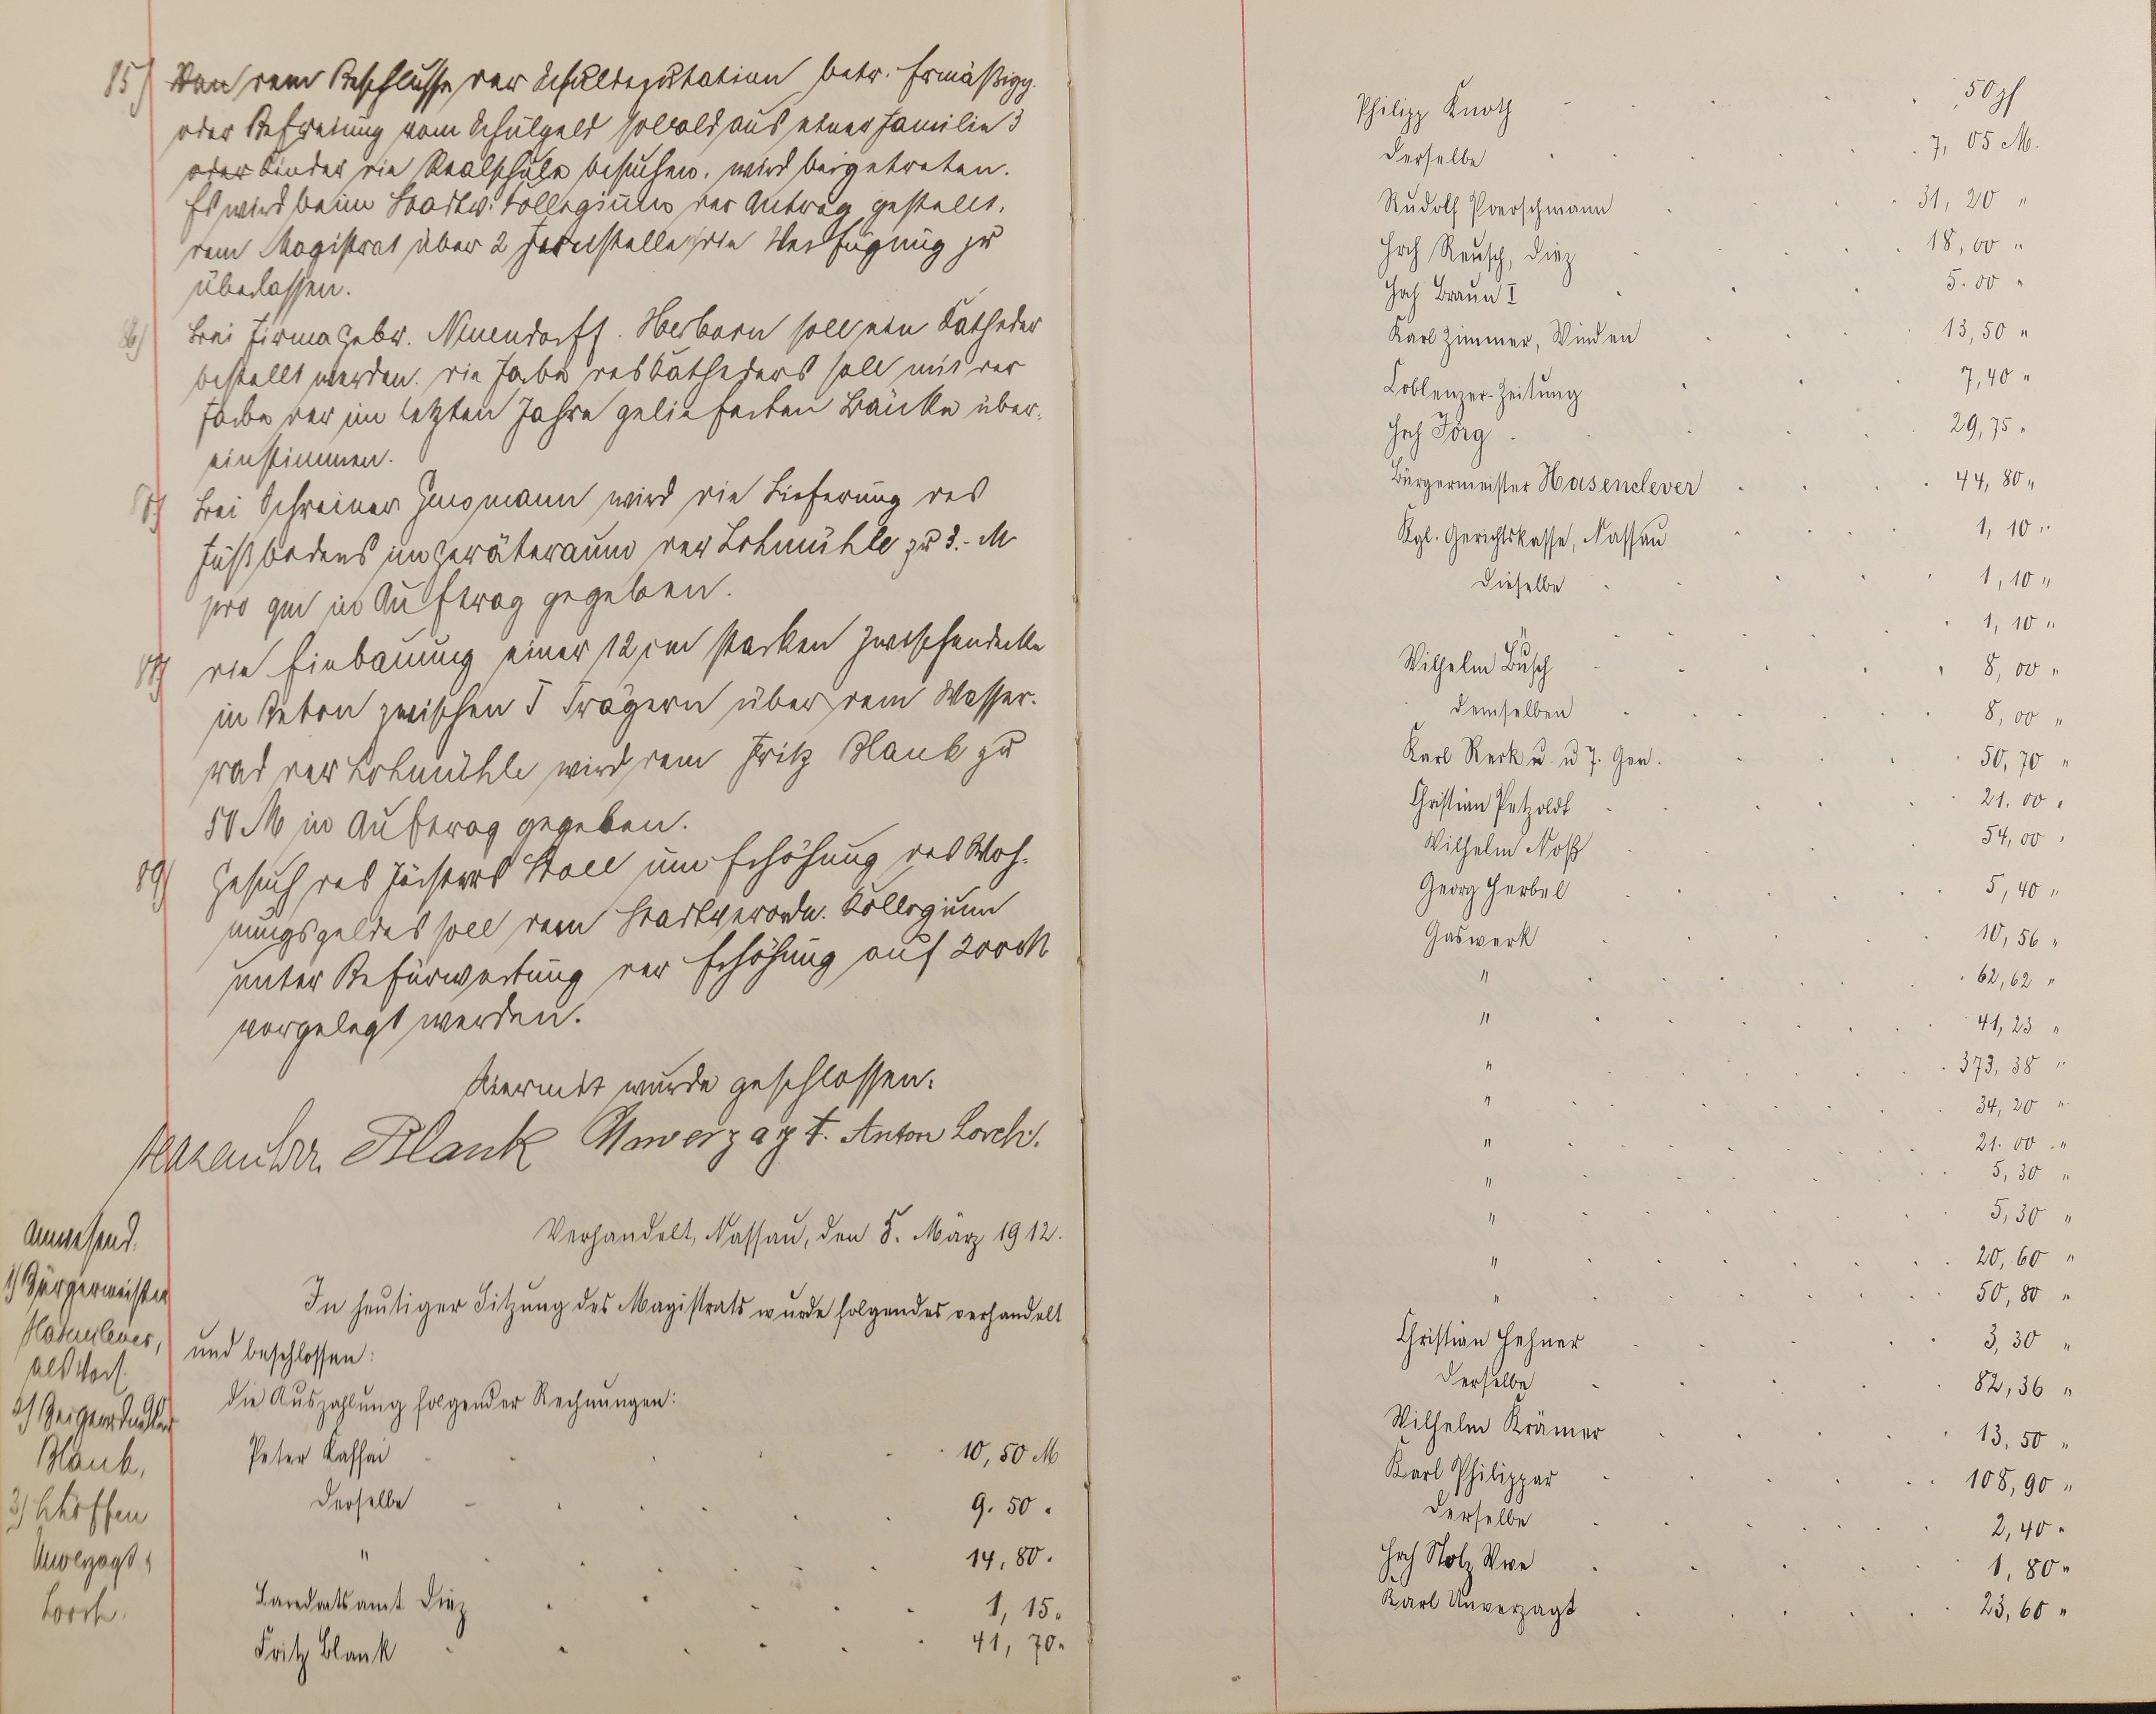 85) Von dem Beschlusse der Schuldeputation betr. Ermäßigg.
oder Befreiung vom Schulgeld sobald aus einer Familie 3
oder Kinder die Realschule besuchen, wird beigetreten.
Es wird beim Stadtv. Kollegium der Antrag gestellt,
dem Magistrat über 2 Freistellen die Verfügung zu
überlassen.
86) Bei Firma Gebr. Neuendorff. Herborn soll ein Katheder
bestellt werden. die Farbe des Katheders soll mit der
Farbe der im letzten Jahre gelieferten Bänke über-
einstimmen.
87) Bei Schreiner wird die Lieferung des
Fußbodens im Geräteraum der Lohmühle zu 3.- M
pro qm in Auftrag gegeben.
88) die Einbauung einer 12 cm starken Zwischendecke
in Beton zwischen I Trägern über dem Wasser-
rad der Lohmühle wird dem Fritz Blank zu
50 M in Auftrag gegeben.
89) Gesuch des Försters Stoll um Erhöhung des Woh-
nungsgeldes soll dem Stadtverordn. Kollegium
unter Befürwortung der Erhöhung auf 200 M
vorgelegt werden.
Hiermit wurde geschlossen.
Hasenclever. Blank Unverzagt. Anton Lorch.
Verhandelt, Nassau, den 5. März 1912.
Anwesend.
1) Bürgermeister
Hasenclever,
als Vors.
2) Beigeordneter
Blank,
3) Schöffen
Unverzagt,
Lorch.
In heutiger Sitzung des Magistrats wurde folgendes verhandelt
und beschlossen:
die Auszahlung folgender Rechnungen:
Peter Kaffai 10,50 M
Derselbe 9.50 "
" 14,80 "
Landratsamt Diez 1,15 "
Fritz Blank 41,70 "
Philipp Knoth 50 pf
Derselbe 7,05 M.
Rudolf Poerschmann 31,20 "
Hrch Reusch, Diez 18,00 "
Hrch Braun I 5.00 "
Karl Zimmer, Winden 13,50 "
Coblenzer-Zeitung 7,40 "
Hrch Jörg 29,75 "
Bürgermeister Hasenclever 44,80 "
Kgl. Gerichtskasse, Nassau 1,10 "
Dieselbe 1,10 "
" 1,10 "
Wilhelm Busch 8,00 "
demselben 8,00 "
Karl Rerk u. u 7. Gen. 50,70 "
Christian Petzoldt 21.00 "
Wilhelm Noß 54,00 "
Georg Herbel 5,40 "
Gaswerk 10,56 "
" 62,62 "
" 41,23 "
" 373,38 "
" 34,20 "
" 21.00 "
" 5,30 "
" 5,30 "
" 20,60 "
" 50,80 "
Christian Hehner 3,30 "
Derselbe 82,36 "
Wilhelm Krämer 13,50 "
Karl Philippar 108,90 "
Derselbe 2,40 "
Hrch Stolz Wwe 1,80 "
Karl Unverzagt 23,60 "